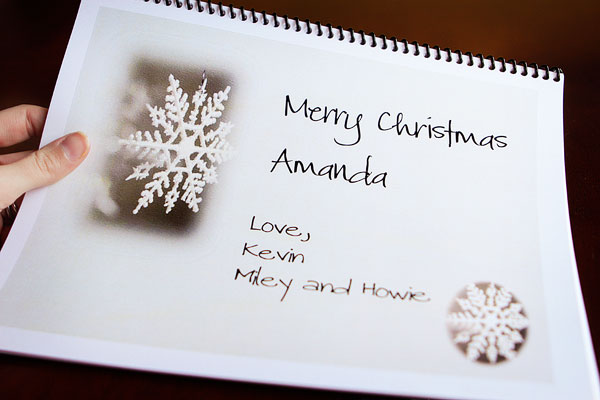 Merry Christmas
Amanda
Love,
Kevin
Miley and Howie